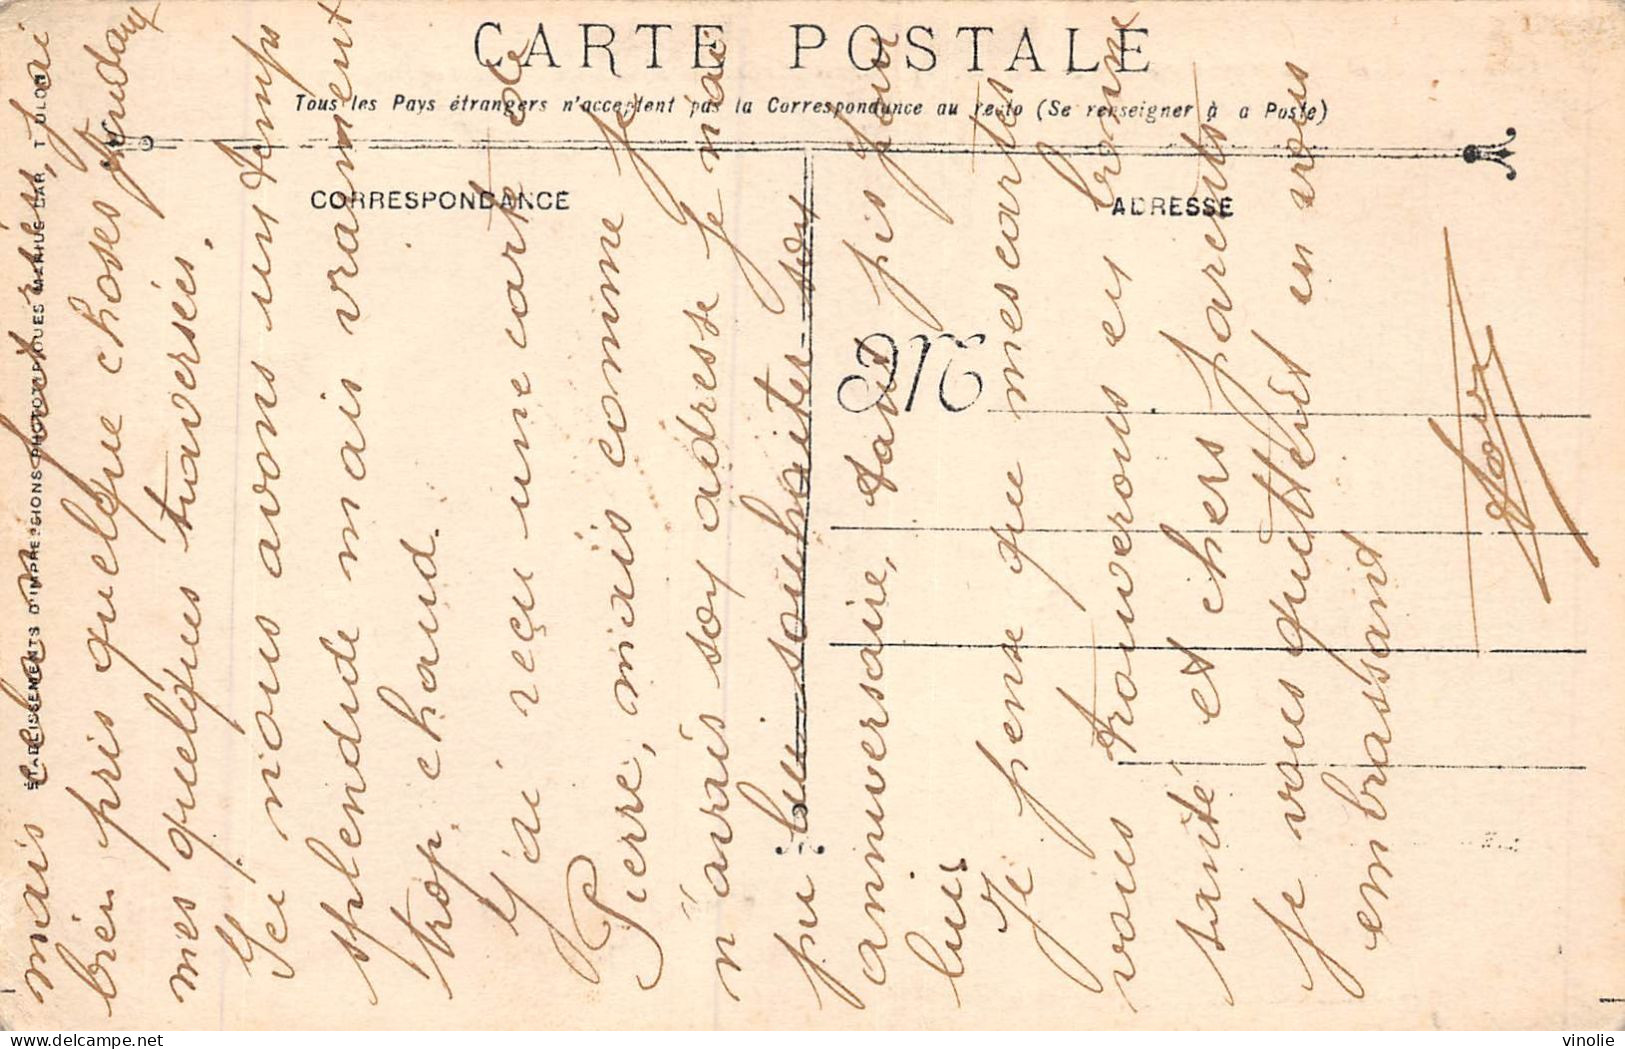 CARTE POSTALE
Tous les Pays étrangers n'acceptent pas la Correspondance au recto (Se renseigner à a Poste)
CORRESPONDANCE
ADRESSE
M
ÉTABLISSEMENTS D'IMPRESSIONS PHOTOTYPIQUES MARIUS BAR T ULON
mais cela va fort, j'ai
bien pris quelque choses pendant
mes quelques traversées.
Ici nous avons un temps
splendide mais vraiment
trop chaud.
J'ai reçu une carte de
Pierre, mais comme je
n'avais soy adresse je n'ai
pu lui souhaiter soy
anniversaire, tant pis pour
lui.
Je pense qu mes cartes
vous trouverons en bonne
santé et chers parents
Je vous quittent en vous
embrassant
vinolie